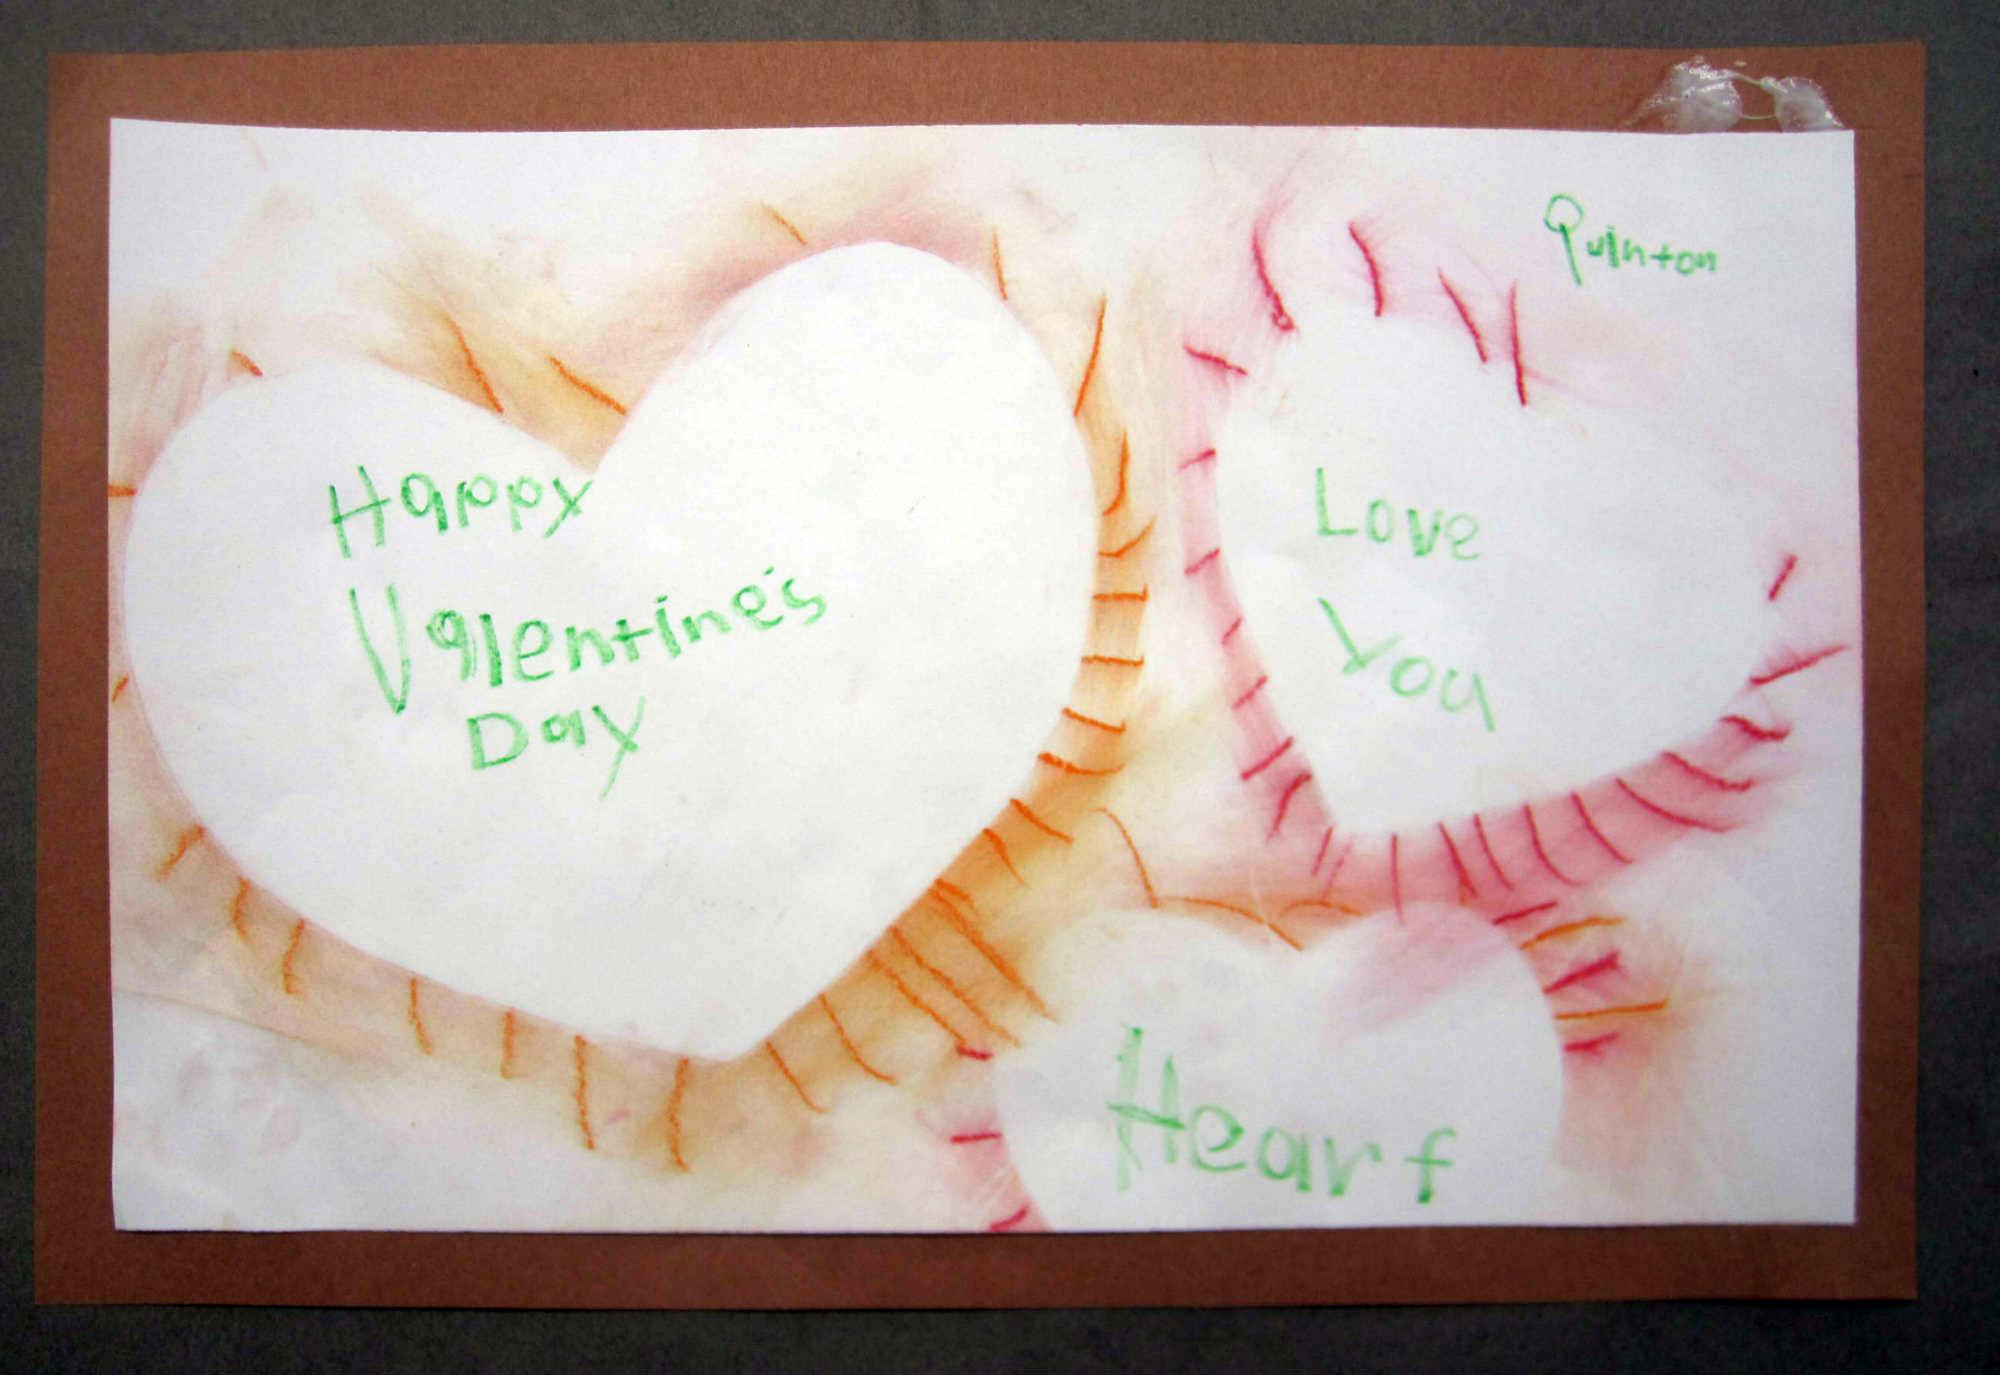 Quinton
Happy
Valentine's
Day
Love
You
Heart